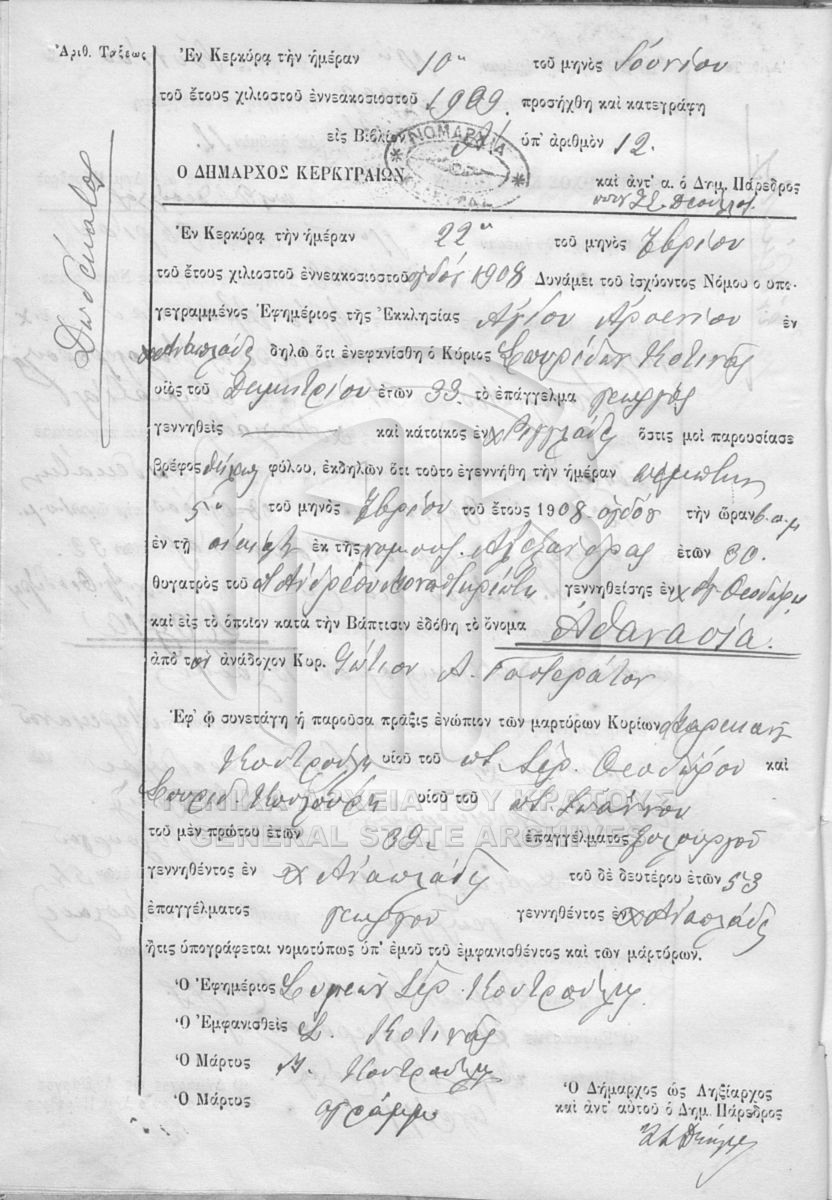 Ἀριθ. Τάξεως
Δωδέκατος
Ἐν Κερκύρᾳ τὴν ἡμέραν 10ην τοῦ μηνὸς Ἰουνίου
τοῦ ἔτους χιλιοστοῦ ἐννεακοσιοστοῦ 1909 προσήχθη καὶ κατεγράφη
εἰς Βιβλίον ὑπ' ἀριθμὸν 12.
ΝΟΜΑΡΧΙΑ
Ο ΔΗΜΑΡΧΟΣ ΚΕΡΚΥΡΑΙΩΝ
καὶ ἀντ' α. ὁ Δημ. Πάρεδρος
Ἐν Κερκύρᾳ τὴν ἡμέραν 22α τοῦ μηνὸς
τοῦ ἔτους χιλιοστοῦ ἐννεακοσιοστοῦ ὀγδόου 1908 Δυνάμει τοῦ ἰσχύοντος Νόμου ὁ υπο-
γεγραμμένος Ἐφημέριος τῆς Ἐκκλησίας Ἁγίου Ἀρσενίου ἐν
δηλῶ ὅτι ἐνεφανίσθη ὁ Κύριος Σπυρίδων Κοτινᾶς
υἱὸς τοῦ Δημητρίου ἐτῶν 33 τὸ ἐπάγγελμα γεωργὸς
γεννηθεὶς καὶ κάτοικος ἐν ὅστις μοὶ παρουσίασε
βρέφος θήλεος φύλου, ἐκδηλῶν ὅτι τοῦτο ἐγεννήθη τὴν ἡμέραν πέμπτην
5ην τοῦ μηνὸς τοῦ ἔτους 1908 ὀγδόου τὴν ὥραν 6 π.μ
ἐν τῇ οἰκίᾳ ἐκ τῆς Ἀλεξάνδρας ἐτῶν 30.
θυγατρὸς τοῦ Ἀνδρέου Μοναστηριώτη γεννηθείσης ἐν χ Ἁγ Θεοδώρω
καὶ εἰς τὸ ὁποῖον κατὰ τὴν Βάπτισιν ἐδόθη τὸ ὄνομα Ἀθανασία.
ἀπὸ τὸν ἀνάδοχον Κυρ. Φώτιον Α. Γαστεράτον
Ἐφ' ᾧ συνετάγη ἡ παροῦσα πρᾶξις ἐνώπιον τῶν μαρτύρων Κυρίων
Κουτρούλη υἱοῦ τοῦ Θεοδώρου καὶ
Σπυρίδ υἱοῦ τοῦ Ἰωάννου
τοῦ μὲν πρώτου ἐτῶν 39 ἐπαγγέλματος ξυλουργοῦ
γεννηθέντος ἐν χ Ἀναπλάδες τοῦ δὲ δευτέρου ἐτῶν 53
ἐπαγγέλματος γεωργοῦ γεννηθέντος ἐν χ Ἀναπλάδες
ἥτις ὑπογράφεται νομοτύπως ὑπ' ἐμοῦ τοῦ ἐμφανισθέντος καὶ τῶν μαρτύρων.
Ὁ Ἐφημέριος Συμεὼν Ἱερ. Κουτρούλης
Ὁ Ἐμφανισθεὶς Σ. Κοτινᾶς
Ὁ Μάρτυς Κουτρούλης
Ὁ Μάρτυς ἀγράμμ
Ὁ Δήμαρχος ὡς Ληξίαρχος
καὶ ἀντ' αὐτοῦ ὁ Δημ. Πάρεδρος
ΓΕΝΙΚΑ ΑΡΧΕΙΑ ΤΟΥ ΚΡΑΤΟΥΣ
GENERAL STATE ARCHIVES